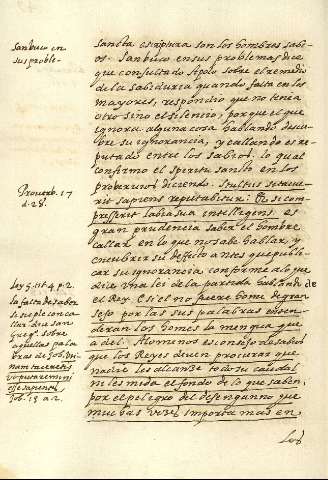 Sanbuco en
sus proble-
sancta escriptura son los hombres sabi-
os. Sanbuco en sus problemas dice
que consultado Apolo sobre el remedio
de la sabiduria quando falta en los
mayores, respondio que no tenia
otro sino el silencio; porque el que
ignora alguna cosa hablando descu-
bre su ignorancia, y callando es re-
putado entre los sabios. lo qual
confirmo el spiritu sancto en los
proberuios diciendo. stultus si tacue-
rit sapiens reputabitur: et si com-
presserit labia sua intelligens. es
gran prudencia saber el hombre
callar en lo que no sabe hablar, y
encubrir su deffecto antes que publi-
car su ignorancia conforme a lo que
dice una ley de la partida hablando de
el Rey. E si el no fuere home de gran
seso por las sus palabras enten-
deran los homes la mengua que
a del. Alomenos es consejo de sabios
que los Reyes deuen procurar que
nadie les alcanze todo su caudal
ni les mida el fondo de lo que saben,
por el peligro del desenganno que
muchas vezes importa mas en
los
Prouerb. 17
d. 28.
ley 5. tit 4 p. 2.
la falta de saber
se suple con ca-
llar. dice san
Greg.º sobre
aquellas pala-
bras de Job, uti-
nam taceretis
ut putaremini
esse sapientes
Job. 13 a 2.